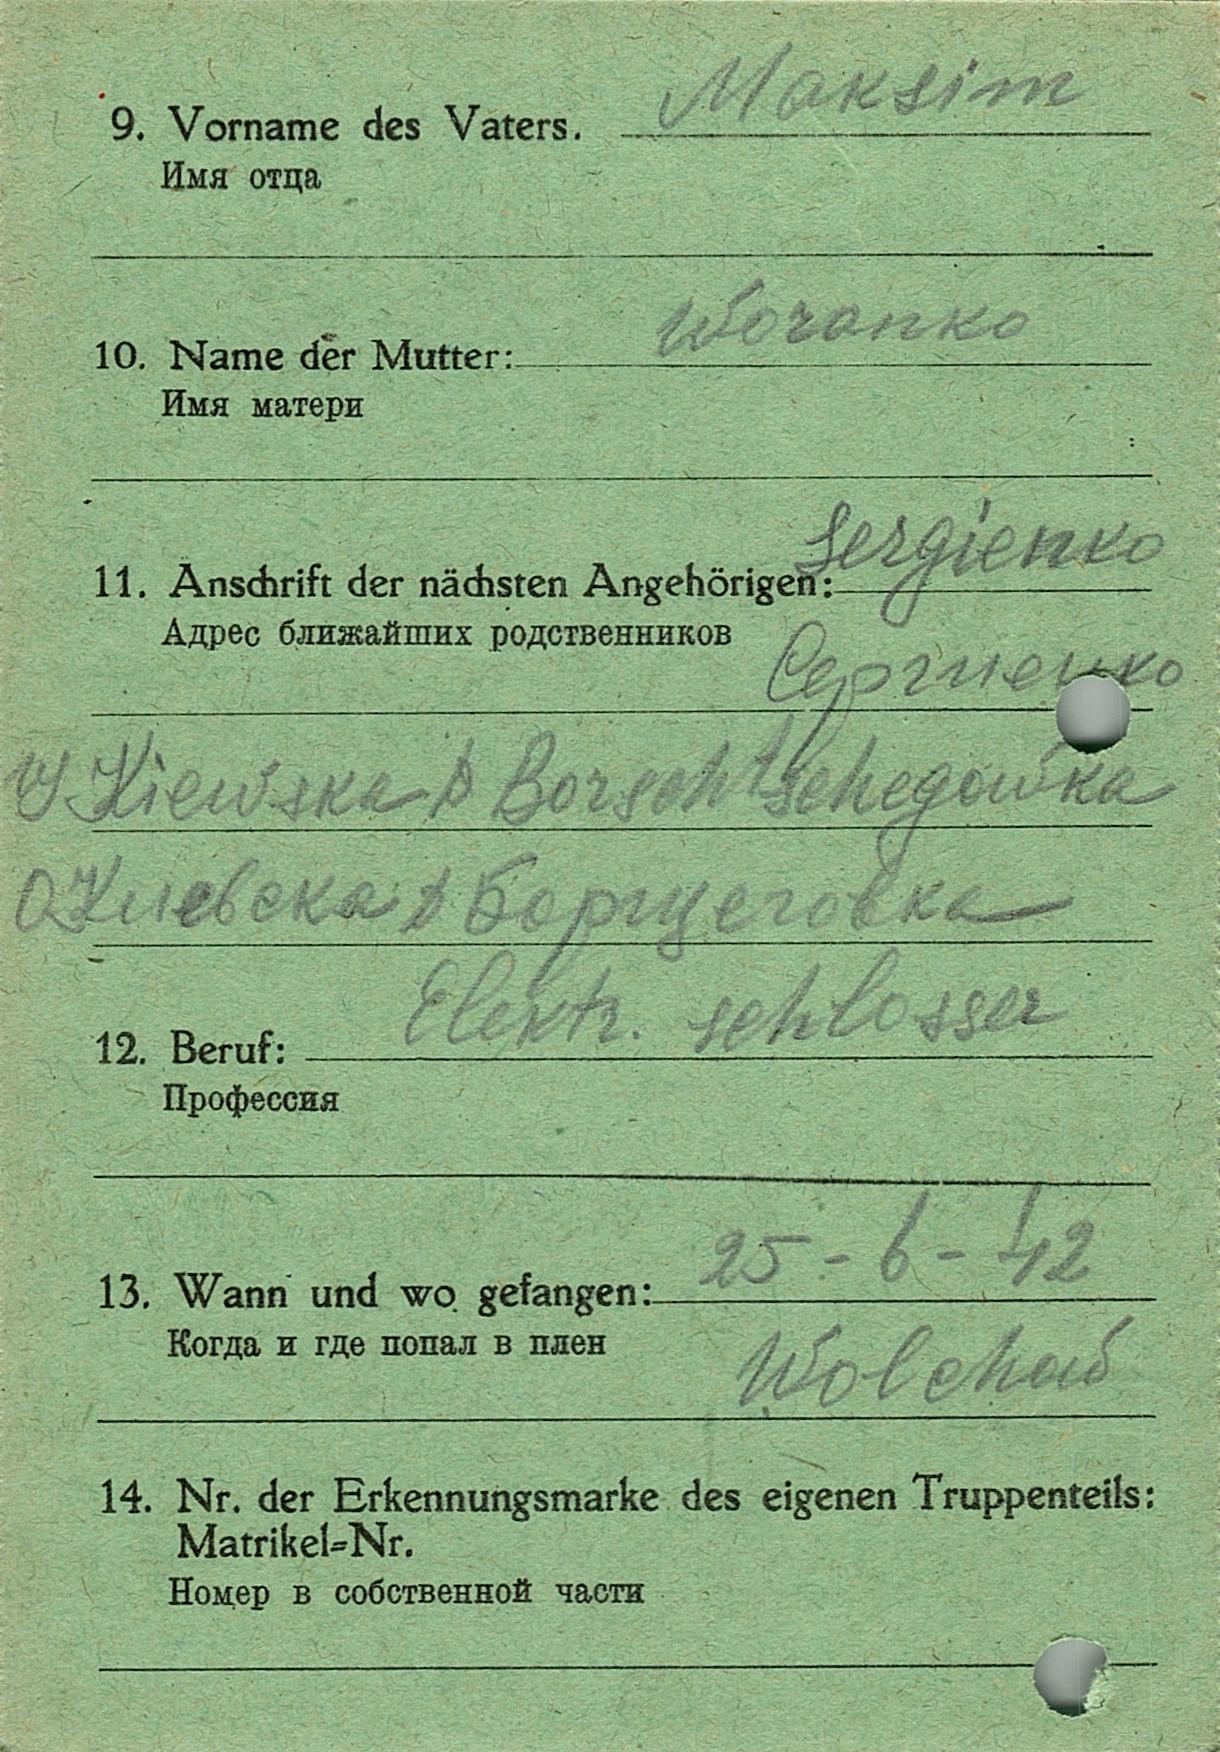 9. Vorname des Vaters. Maksim
Имя отца
10. Name der Mutter: Woranko
Имя матери
11. Anschrift der nächsten Angehörigen: Sergienko
Адрес ближайших родственников
Сергиенко
Kiewska Borschtschegowka
О Киевска Борщеговка
12. Beruf: Elektr. schlosser
Профессия
13. Wann und wo gefangen: 25-6-42
Когда и где попал в плен
Wolchow
14. Nr. der Erkennungsmarke des eigenen Truppenteils:
Matrikel=Nr.
Номер в собственной части